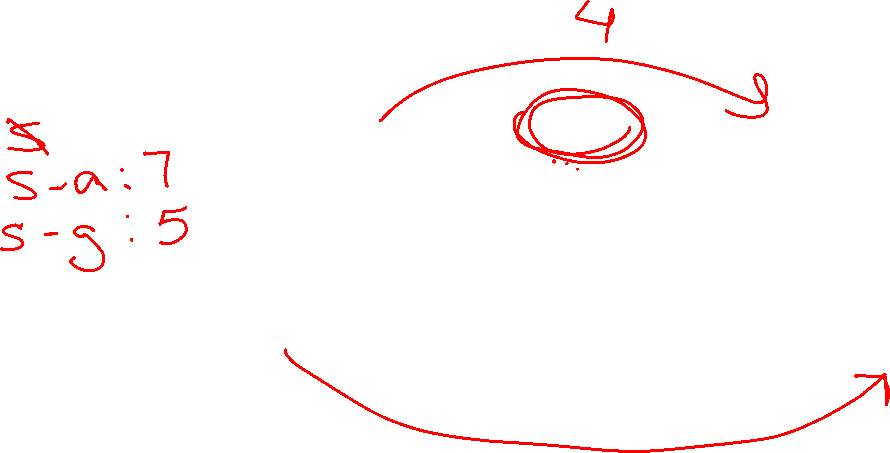 4
s-a:7
s-g:5